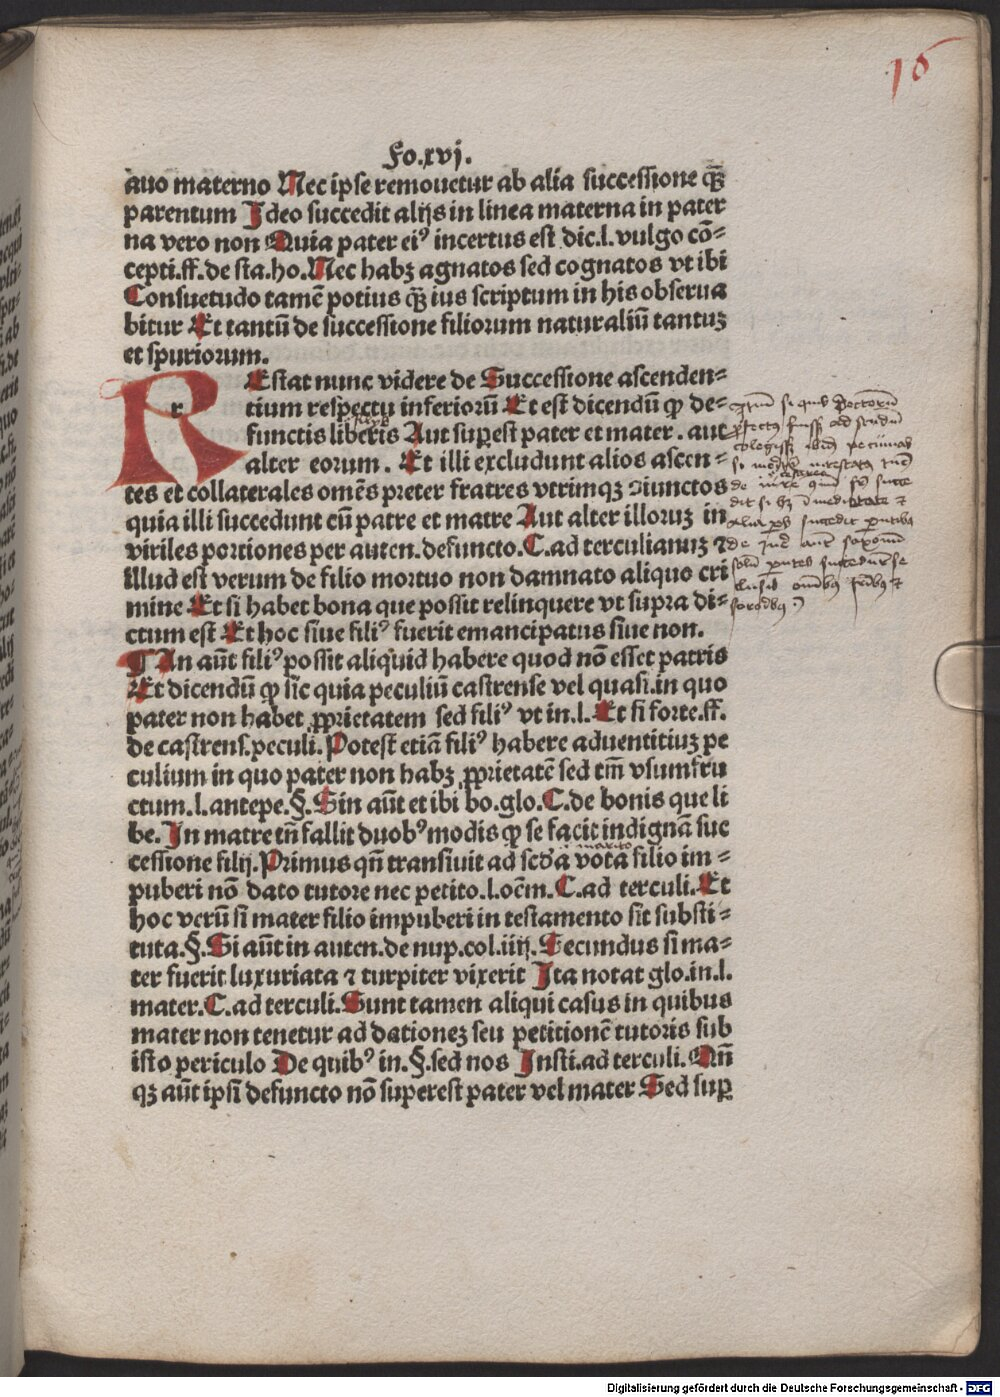 16
Fo.xvj.
auo materno Nec ipse remouetur ab alia successione q̃ꝫ
parentum Ideo succedit alijs in linea materna in pater
na vero non Quia pater eiꝰ incertus est dic.l. vulgo cõ-
cepti.ff. de sta.ho. Nec habꝫ agnatos sed cognatos vt ibi
Consuetudo tamẽ potius q̃ꝫ ius scriptum in his obserua
bitur Et tantũ de successione filiorum naturaliũ tantuꝫ
et spuriorum.
REstat nunc videre de Successione ascenden-
tium respectu inferiorũ Et est dicendũ ꝙ de-
functis liberis Aut suꝑest pater et mater. aut
alter eorum. Et illi excludunt alios ascen-
tes et collaterales om̃es preter fratres vtrimqꝫ ↄiunctos
quia illi succedunt cũ patre et matre Aut alter illoruꝫ in
viriles portiones per auten. defuncto. C. ad terculianuꝫ ⁊
illud est verum de filio mortuo non damnato aliquo cri
mine Et si habet bona que possit relinquere vt supra di-
ctum est Et hoc siue filiꝰ fuerit emancipatus siue non.
¶ An aũt filiꝰ possit aliquid habere quod nõ esset patris
Et dicendũ ꝙ sic quia peculiũ castrense vel quasi. in quo
pater non habet ꝓprietatem sed filiꝰ vt in.l. Et si forte.ff.
de castrens.peculi. Potest etiã filiꝰ habere aduentitiuꝫ pe
culium in quo pater non habꝫ ꝓprietatẽ sed tm̃ vsumfru
ctum.l.antepe.§. Sin aũt et ibi bo.glo. C. de bonis que li
be. In matre tñ fallit duobꝰ modis ꝙ se facit indignã suc
cessione filij. Primus qñ transiuit ad sed̃a vota filio im-
puberi nõ dato tutore nec petito.l.oẽm. C. ad terculi. Et
hoc verũ si mater filio impuberi in testamento sit substi-
tuta.§. Si aũt in auten.de nup.col.iiij. Secundus si ma-
ter fuerit luxuriata ⁊ turpiter vixerit Ita notat glo.in.l.
mater. C. ad terculi. Sunt tamen aliqui casus in quibus
mater non tenetur ad dationeꝫ seu petitionẽ tutoris sub
isto periculo De quibꝰ in.§.sed nos Insti.ad terculi. Qñ
qꝫ aũt ipsi defuncto nõ superest pater vel mater Sed suꝑ
Digitalisierung gefördert durch die Deutsche Forschungsgemeinschaft - DFG